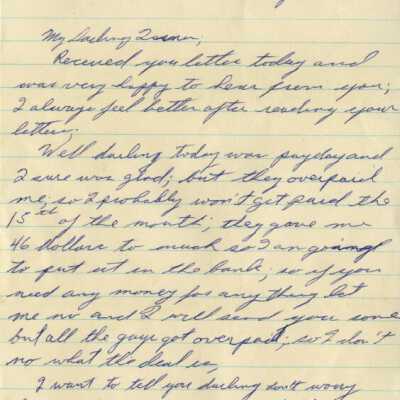 My Darling
Received you letter today and
was very happy to hear from you;
I always feel better after reading your
letters;
Well darling today was payday and
I sure was glad; but they overpaid
me, so I probably won't get paid the
15th of the month; they gave me
46 dollars to much so I an going
to put it in the bank; so if you
need any money for any thing let
me no and I will send you some
but all the guys got overpaid; so I don't
no what the deal is,
I want to tell you darling don't worry